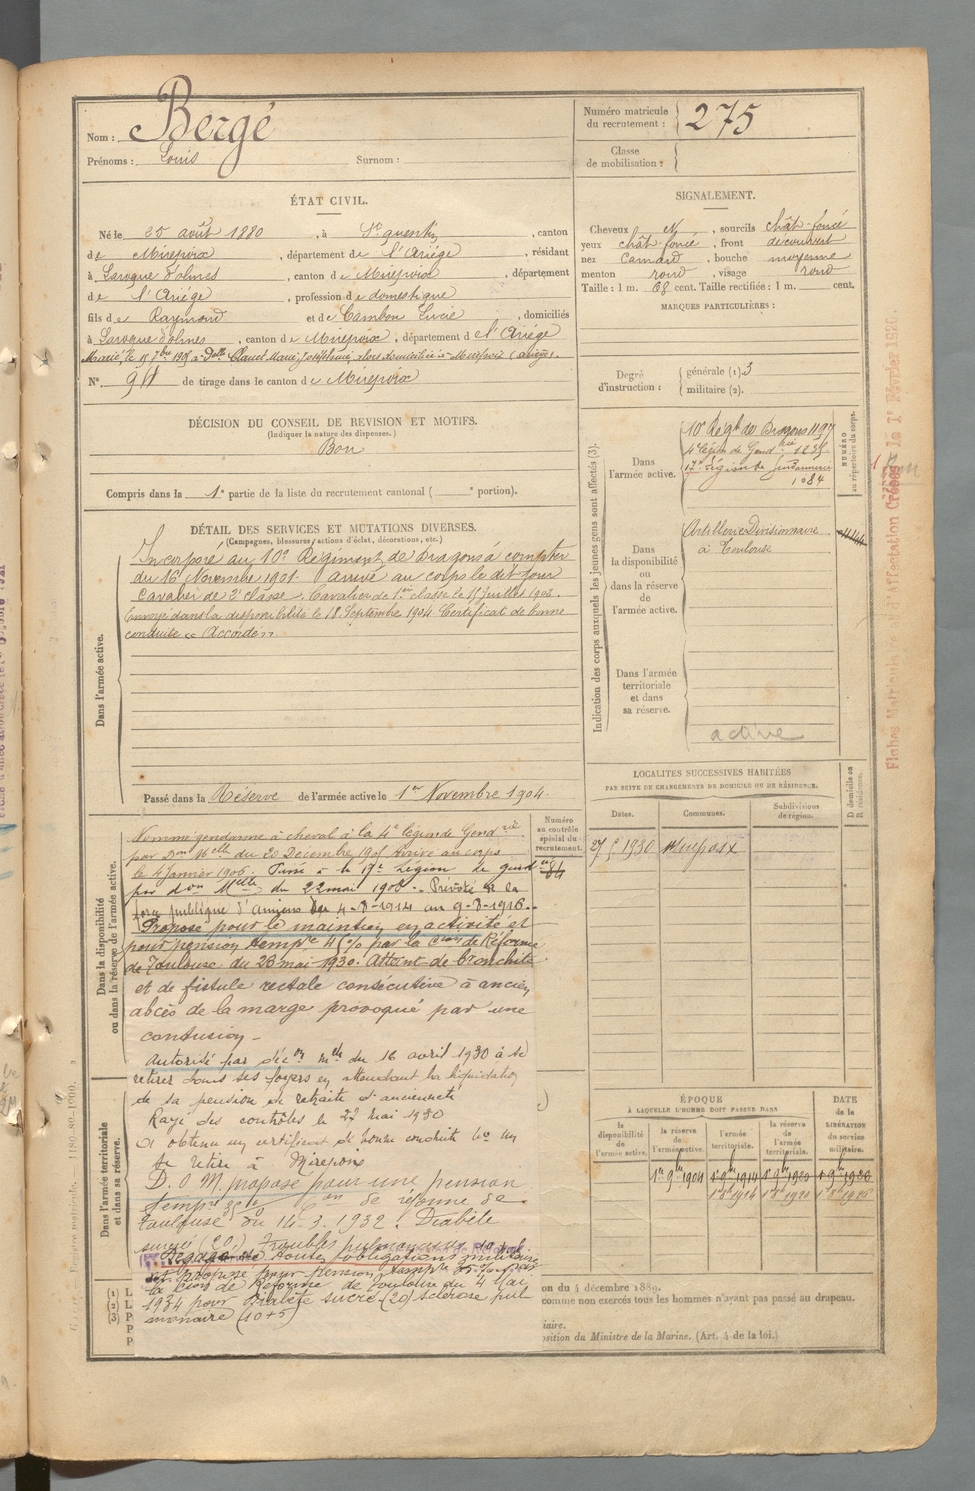 Nom : Bergé
Prénoms : Louis Surnom :
Numéro matricule du recrutement : 275
Classe de mobilisation :
ÉTAT CIVIL.
Né le 25 août 1880, à St quentin, canton
de Mirepoix, département de l'Ariége, résidant
à Laroque d'olmes, canton de Mirepoix, département
de l'Ariége, profession de domestique
fils de Raymond et de Cambon Lucie, domiciliés
à Laroque d'olmes, canton de Mirepoix, département de l'Ariége
Marié, le 15 7bre 1905 à Delle Clanet Marie, Joséphine, domiciliée à Mirepoix (Ariège)
N° 91 de tirage dans le canton de Mirepoix
SIGNALEMENT.
Cheveux , sourcils chât-foncé
yeux chât-foncé, front découvert
nez Camard, bouche moyenne
menton rond, visage rond
Taille : 1 m. 68 cent. Taille rectifiée : 1 m. cent.
MARQUES PARTICULIÈRES :
Degré d'instruction : générale (1). 3
militaire (2).
DÉCISION DU CONSEIL DE REVISION ET MOTIFS.
(Indiquer la nature des dispenses.)
Bon
Compris dans la 1e partie de la liste du recrutement cantonal ( e portion).
DÉTAIL DES SERVICES ET MUTATIONS DIVERSES.
(Campagnes, blessures, actions d'éclat, décorations, etc.)
Dans l'armée active.
Incorporé au 10e Régiment de Dragons à compter
du 16 Novembre 1901. arrivé au corps le dit jour
Cavalier de 2e classe. Cavalier de 1ère classe le 15 juillet 1903.
Envoyé dans la disponibilité le 18 Septembre 1904 Certificat de bonne
conduite Accordé
Passé dans la Réserve de l'armée active le 1er Novembre 1904.
Indication des corps auxquels les jeunes gens sont affectés (3).
NUMÉRO au répertoire du corps.
Dans l'armée active.
10e Régt de Dragons 1197
4e légion de Gendrie 1235
17e Légion de Gendarmerie
1084
Dans la disponibilité ou dans la réserve de l'armée active.
Artillerie Divisionnaire
à Toulouse
Dans l'armée territoriale et dans sa réserve.
active
Fiches Matricule d'Affectation Créées le 1er Février 1926.
Dans la disponibilité ou dans la réserve de l'armée active.
Numéro au contrôle spécial du recrutement.
84
Nommé gendarme à cheval à la 4e légion de Gendrie
par Don Mlle du 20 Décembre 1905 Arrivé au corps
le 4 Janvier 1906. Passé à la 17e Légion de gend
par don Mlle du 22 mai 1908. Prévôté à la
force publique d'amiens du 4-8-1914 au 9-8-1916.
Proposé pour le maintien en activité et
pour pension tempre 45% par la Cion de Réforme
de Toulouse du 28 mai 1930. Atteint de bronchite
et de fistule rectale consécutive à ancien
abcès de la marge provoqué par une
contusion
Autorisé par décon mlle du 16 avril 1930 à se
retirer dans ses foyers en attendant la liquidation
de sa pension de retraite d'ancienneté
Rayé des contrôles le 27 mai 1930
A obtenu un certificat de bonne conduite
Se retire à Mirepoix
D.O.M. proposé pour une pension
tempre 35% Con de réforme de
Toulouse du 14-3-1932. Diabète
sucré (20) troubles pulmonaires
Dégagé de toutes obligations militaires
et proposé pour pension tempre 35% par
la Cion de Réforme de Toulouse du 4 Mai
1934 pour Diabète sucré (20) sclérose pul
monaire (10+5)
Dans l'armée territoriale et dans sa réserve.
LOCALITÉS SUCCESSIVES HABITÉES
PAR SUITE DE CHANGEMENTS DE DOMICILE OU DE RÉSIDENCE.
Dates. Communes. Subdivisions de région. D domicile ou R résidence.
27 5 1930 Mirepoix
ÉPOQUE
À LAQUELLE L'HOMME DOIT PASSER DANS
la disponibilité de l'armée active. la réserve de l'armée active. l'armée territoriale. la réserve de l'armée territoriale.
DATE de la LIBÉRATION du service militaire.
1er 9bre 1904 1er 9bre 1914 1er 9bre 1920 1er 9bre 1926
on du 4 décembre 1889.
comme non exercés tous les hommes n'ayant pas passé au drapeau.
iaire.
osition du Ministre de la Marine. (Art. 4 de la loi.)